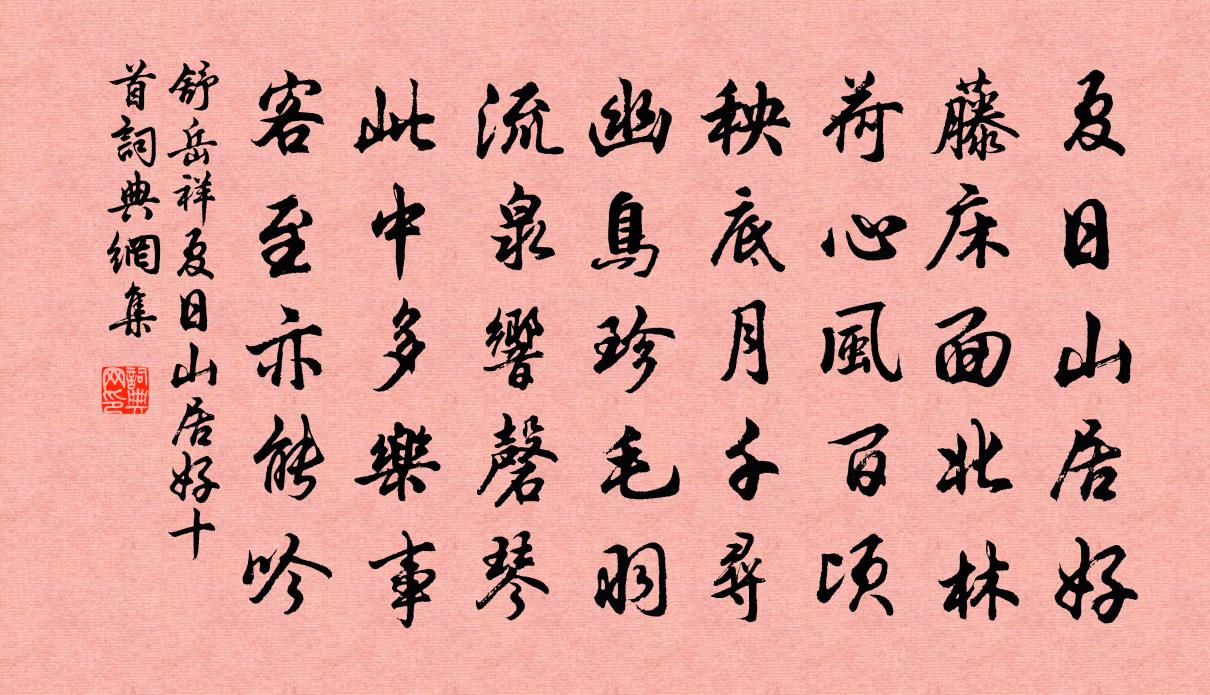 夏日山居好
藤床面北林
荷心風百頃
秧底月千尋
幽鳥珍毛羽
流泉響磬琴
此中多樂事
客至亦能吟
舒岳祥夏日山居好十
首詞典網集
詞典
网印